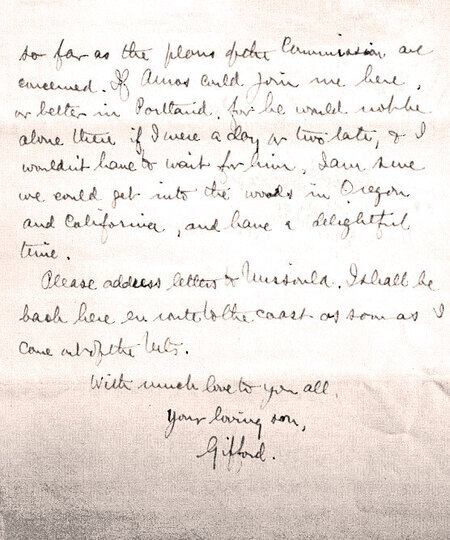 so far as the plans of the Commission are
concerned. If Amos could join me here,
or better in Portland, for he would not be
alone there if I were a day or two late, & I
wouldn't have to wait for him, I am sure
we could get into the woods in Oregon
and California, and have a delightful
time.
Please address letters to Missoula. I shall be
back here en route to the coast as soon as I
come out of the Mts.
With much love to you all,
Your loving son,
Gifford.